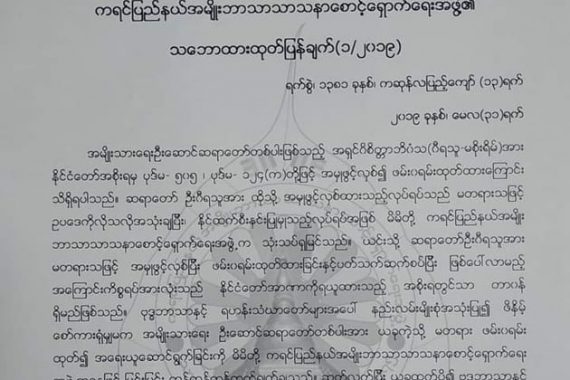 ကရင်ပြည်နယ်အမျိုးဘာသာသာသနာစောင့်ရှောက်ရေးအဖွဲ့၏
သဘောထားထုတ်ပြန်ချက်(၁/၂၀၁၉)
ရက်စွဲ၊ ၁၃၈၁ ခုနှစ်၊ ကဆုန်လပြည့်ကျော် (၁၃)ရက်
၂၀၁၉ ခုနှစ်၊ မေလ(၃၁)ရက်
အမျိုးသားရေးဦးဆောင်ဆရာတော်တစ်ပါးဖြစ်သည့် အရှင်ဝီစိတ္တာဘိဝံသ(ဝီရသူ-မစိုးရိမ်)အား
နိုင်ငံတော်အစိုးရမှ ပုဒ်မ- ၅၀၅ ၊ ပုဒ်မ- ၁၂၄(က)တို့ဖြင့် အမှုဖွင့်လှစ်၍ ဖမ်းဝရမ်းထုတ်ထားကြောင်း
သိရှိရပါသည်။ ဆရာတော် ဦးဝီရသူအား ထိုသို့ အမှုဖွင့်လှစ်ထားသည့်လုပ်ရပ်သည် မတရားသဖြင့်
ဥပဒေကိုလိုသလိုအသုံးချပြီး၊ နိုင်ထက်စီးနင်းပြုမူသည့်လုပ်ရပ်အဖြစ် မိမိတို့ ကရင်ပြည်နယ်အမျိုး
ဘာသာသာသနာစောင့်ရှောက်ရေးအဖွဲ့.က သုံးသပ်ရှုမြင်သည်။ ယင်းသို့ ဆရာတော်ဦးဝီရသူအား
မတရားသဖြင့် အမှုဖွင့်လှစ်ပြီး ဖမ်းဝရမ်းထုတ်ထားခြင်းနှင့်ပတ်သက်ဆက်စပ်ပြီး ဖြစ်ပေါ်လာမည့်
အကြောင်းကိစ္စရပ်အားလုံးသည် နိုင်ငံတော်အာဏာကိုရယူထားသည့် အစိုးရတွင်သာ တာဝန်
ရှိမည်ဖြစ်သည်။ ဗုဒ္ဓဘာသာနှင့် ရဟန်းသံဃာတော်များအပေါ် နည်းလမ်းမျိုးစုံအသုံးပြု၍ ဖိနှိမ့်
စော်ကားရုံမျှမက အမျိုးသားရေး ဦးဆောင်ဆရာတော်တစ်ပါးအား ယခုကဲ့သို့ မတရား ဖမ်းဝရမ်း
ထုတ်၍ အရေးယူဆောင်ရွက်ခြင်းကို မိမိတို့ ကရင်ပြည်နယ်အမျိုးဘာသာသာသနာစောင့်ရှောက်ရေး